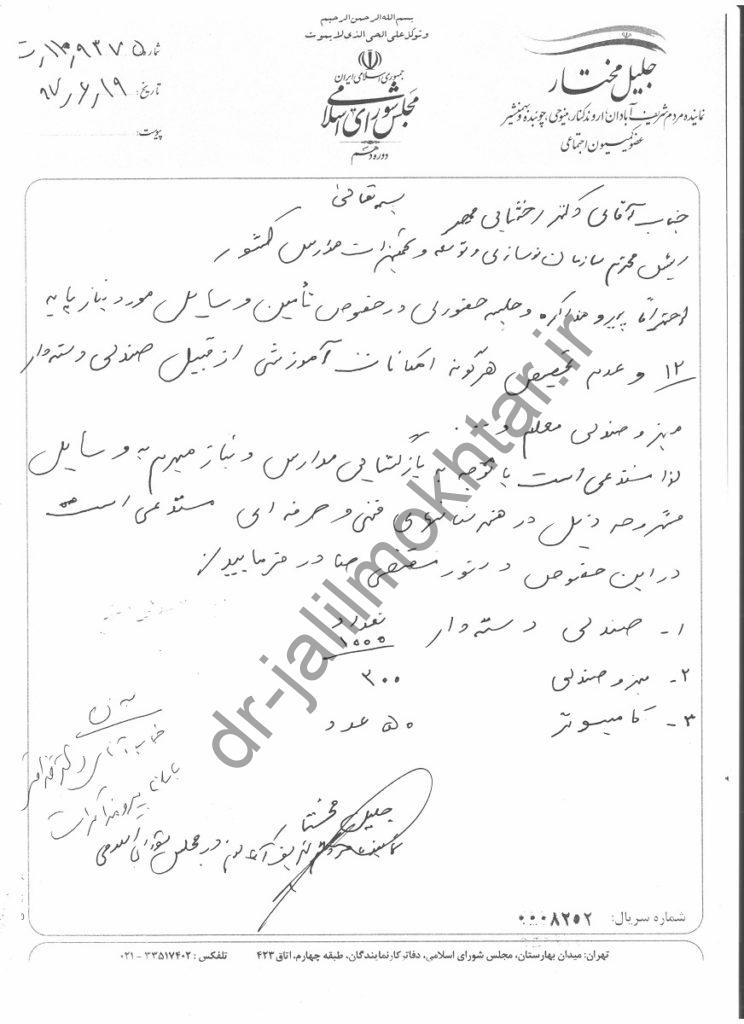 بسم الله الرحمن الرحیم
وتوکل علی الحی الذی لا یموت
جمهوری اسلامی ایران
مجلس شورای اسلامی
دوره دهم
جلیل مختار
نماینده مردم شریف آبادان، اروندکنار، مینوحی، چوئبده و بهمنشیر
عضو کمیسیون اجتماعی
شماره
تاریخ: ۹۷٫۶٫۱۹
پیوست:
بسمه تعالی
جناب آقای دکتر رخشانی مهر
ریئس محترم سازمان نوسازی و توسعه و تجهیزات مدارس کشور
احتراماً پیرو مذاکره و جلسه حضوری در خصوص تأمین وسایل مورد نیاز پایه
۱۲ و عدم تخصیص هرگونه امکانات آموزشی از قبیل صندلی دسته دار
میز و صندلی معلم و ...
لذا مستدعی است با توجه به بازگشایی مدارس و نیاز مبرم به وسایل
مشروحه ذیل در هنرستانهای فنی و حرفه ای مستدعی است
در این خصوص دستور مقتضی صادر فرمایید.
۱- صندلی دسته دار تعداد ۱۰۰۰
۲- میز و صندلی ۳۰۰
۳- کامپیوتر ۵۰ عدد
جناب آقای دکتر
پیرو مذاکرات
جلیل مختار
نماینده مردم شریف آبادان در مجلس شورای اسلامی
شماره سریال: ۰۰۰۸۲۵۲
تهران: میدان بهارستان، مجلس شورای اسلامی، دفاتر کار نمایندگان، طبقه چهارم، اتاق ۴۲۳ تلفکس: ۳۳۵۱۷۴۰۲ - ۰۲۱
dr-jalilmokhtar.ir